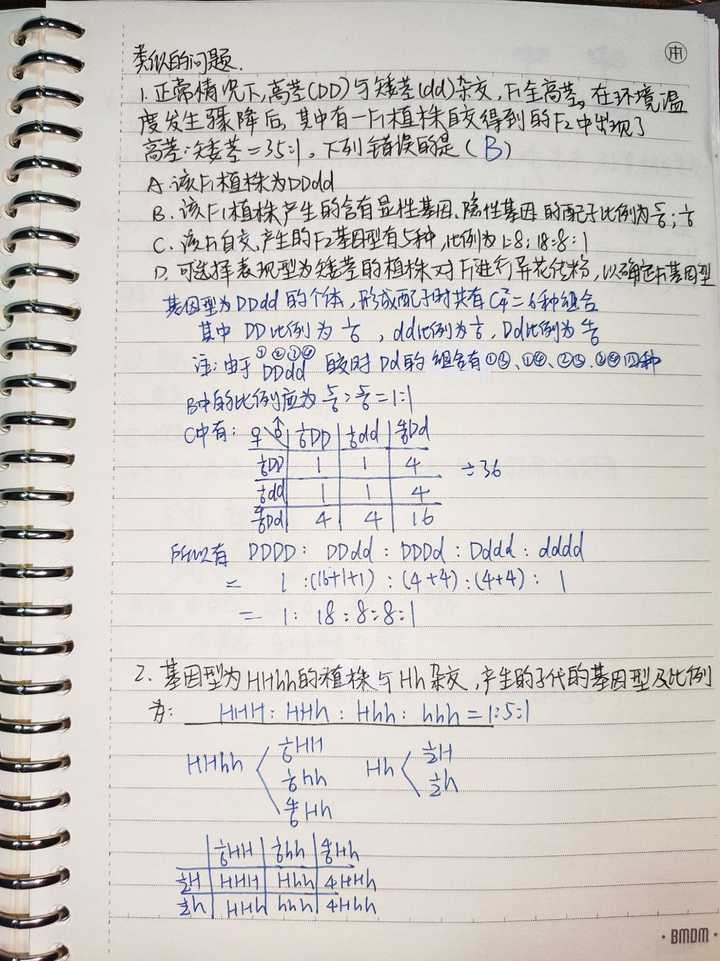 类似的问题.
1. 正常情况下,高茎(DD)与矮茎(dd)杂交,F₁全高茎。在环境温
度发生骤降后,其中有一F₁植株自交得到的F₂中出现了
高茎:矮茎=35:1。下列错误的是(B)
A. 该F₁植株为DDdd
B. 该F₁植株产生的含有显性基因、隐性基因的配子比例为5/6:1/6
C. 该F₁自交,产生的F₂基因型有5种,比例为1:8:18:8:1
D. 可选择表现型为矮茎的植株对F₁进行异花传粉,以确定F₁基因型
基因型为DDdd的个体,形成配子时共有C₄²=6种组合
其中DD比例为1/6,dd比例为1/6,Dd比例为4/6
注:由于①②③④DDdd 的Dd的组合有①③、①④、②③、②④四种
B中的比例应为5/6:5/6=1:1
C中有: ♀ ♂ 1/6DD 1/6dd 4/6Dd
1/6DD 1 1 4 ÷36
1/6dd 1 1 4
4/6Dd 4 4 16
所以有 DDDD : DDdd : DDDd : Dddd : dddd
= 1 :(16+1+1) : (4+4) : (4+4) : 1
= 1: 18:8:8:1
2. 基因型为HHhh的植株与Hh杂交,产生的子代的基因型及比例
为: HHH: HHh : Hhh: hhh = 1:5:1
HHhh 1/6HH 1/6hh 4/6Hh Hh 1/2H 1/2h
1/6HH 1/6hh 4/6Hh
1/2H HHH Hhh 4HHh
1/2h HHh hhh 4Hhh
BMDM